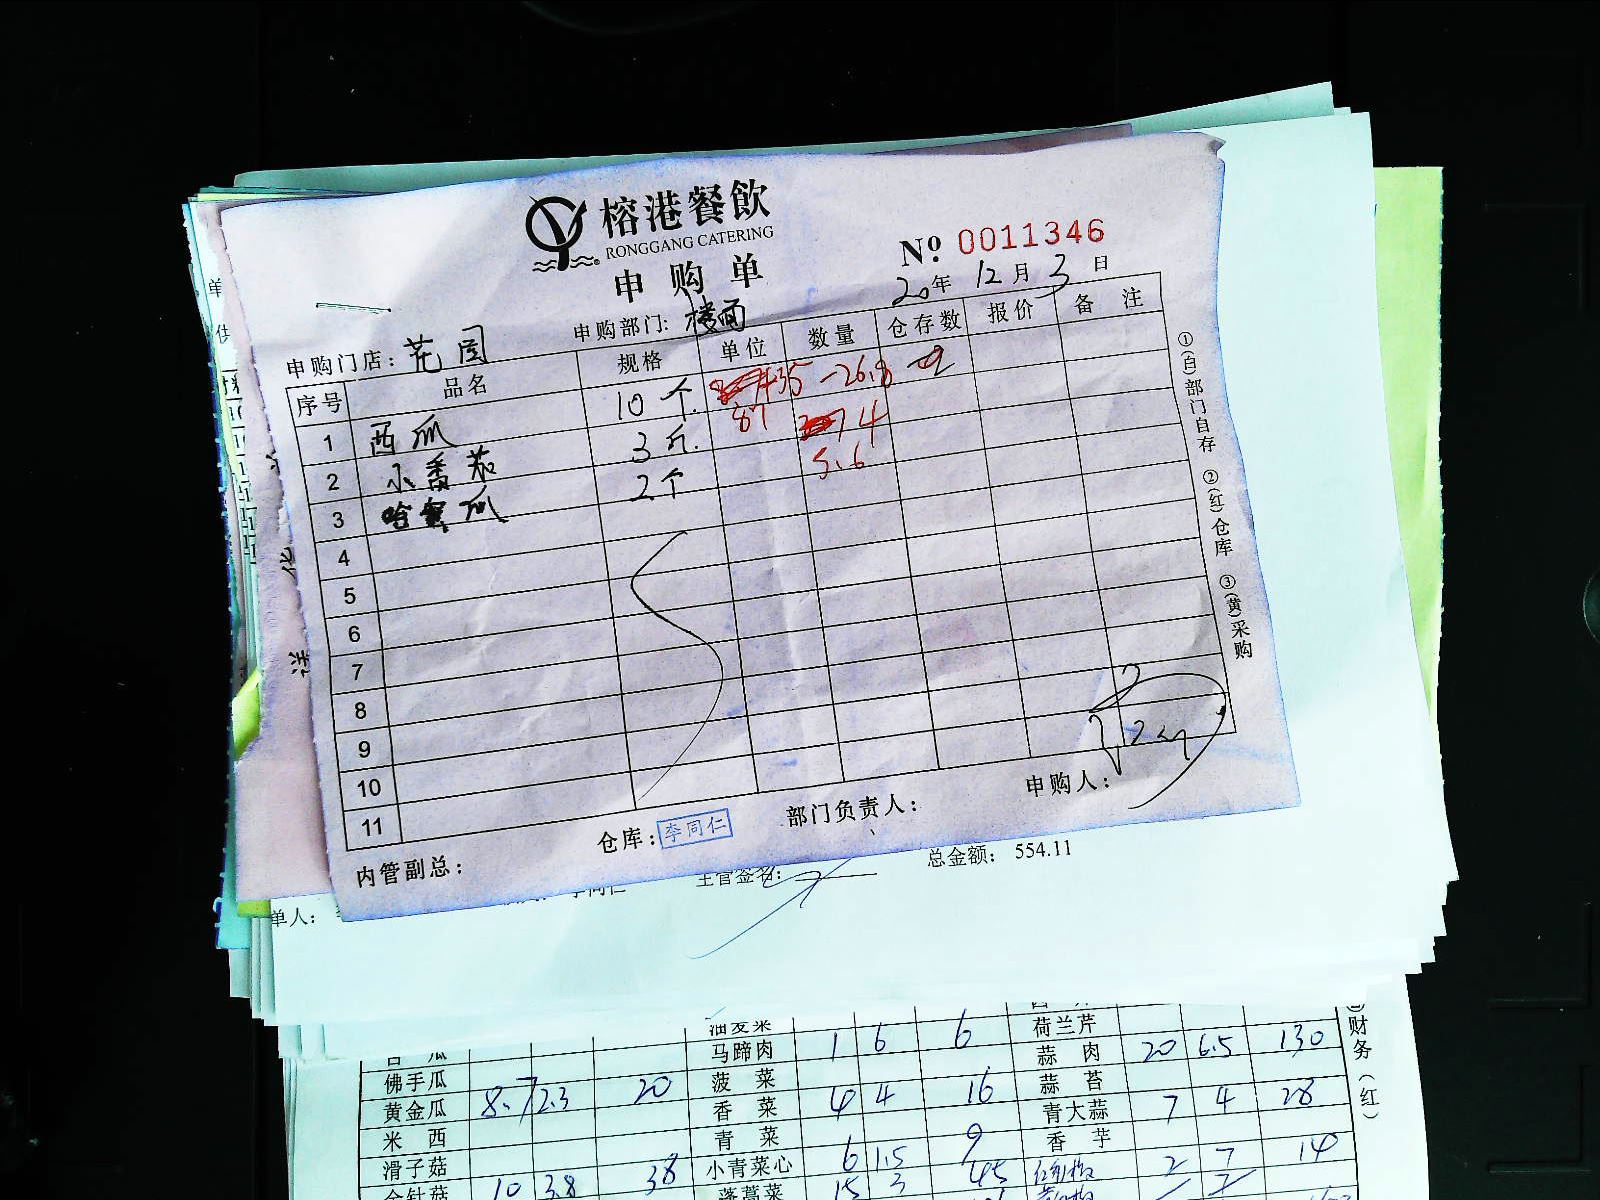 榕港餐飲
RONGGANG CATERING
申购单
№ 0011346
20年 12月 3日
申购门店: 花园 申购部门: 楼面
序号 品名 规格 单位 数量 仓存数 报价 备注
1 西瓜 10个 435-26.8
2 小番茄 3斤 87 14
3 哈蜜瓜 2个 5.6
4
5
6
7
8
9
10
11
内管副总: 仓库: 李同仁 部门负责人: 申购人:
①(白)部门自存 ②(红)仓库 ③(黄)采购
单人: 主管签名: 总金额: 554.11
油麦菜 1 6 6 荷兰芹
马蹄肉 蒜肉 20 6.5 130
佛手瓜 8.7 2.3 20 菠菜 4 4 16 蒜苔
黄金瓜 香菜 青大蒜 7 4 28
米西 青菜 6 1.5 9 香芋
滑子菇 10 3.8 38 小青菜心 15 3 45 2 7 14
金针菇 蓬蒿菜
财务(红)